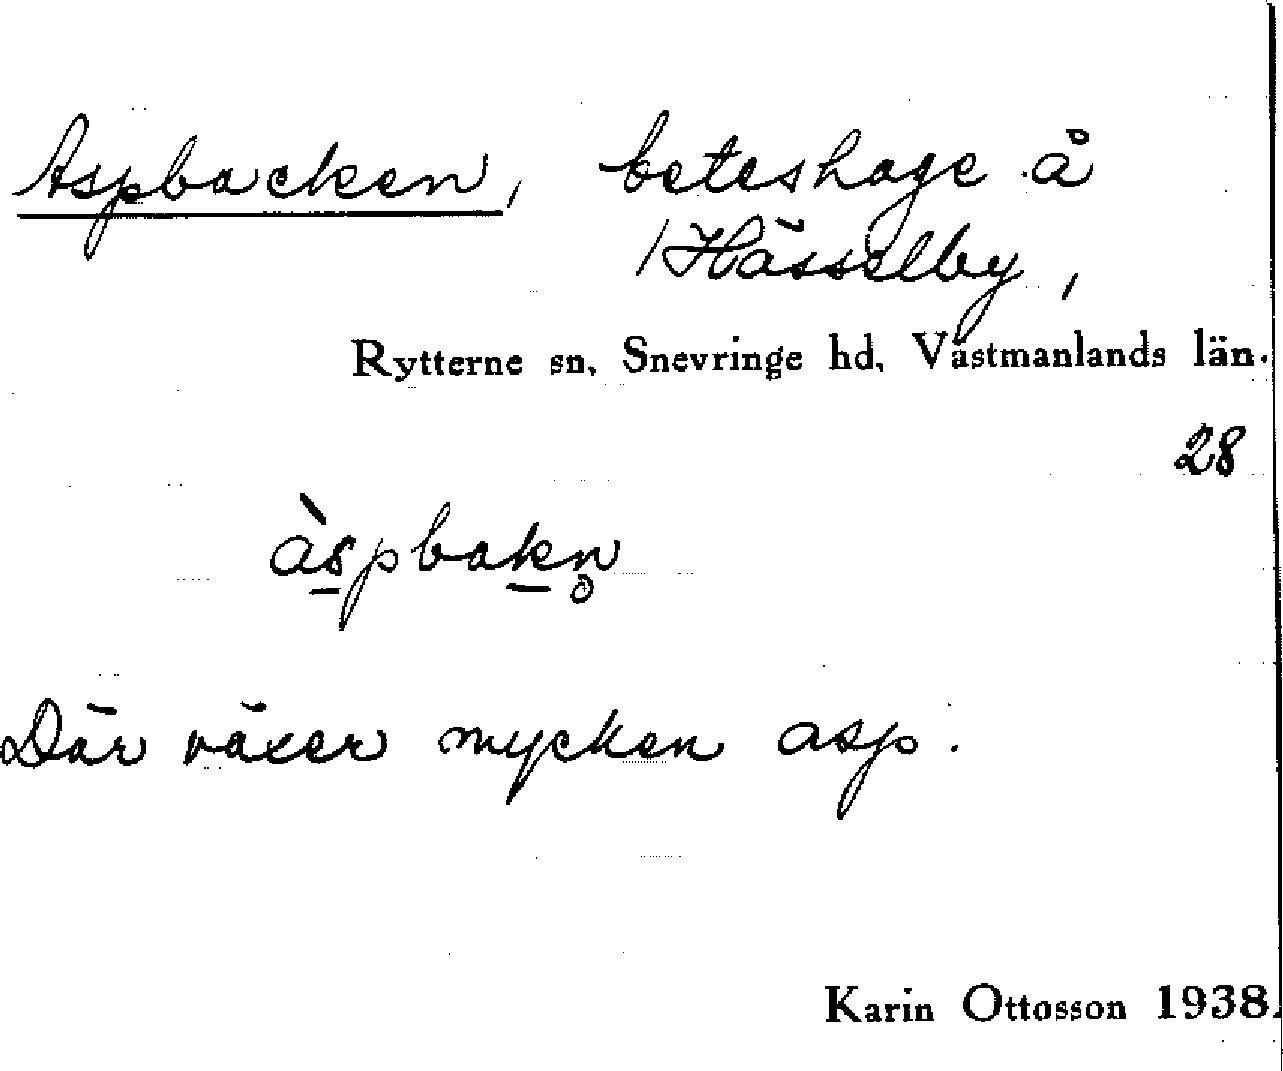 Aspbacken, beteshage å
/Hässelby,
Rytterne sn, Snevringe hd, Västmanlands län.
28
às̲pbak̲n̥
Där växer mycken asp.
Karin Ottosson 1938.